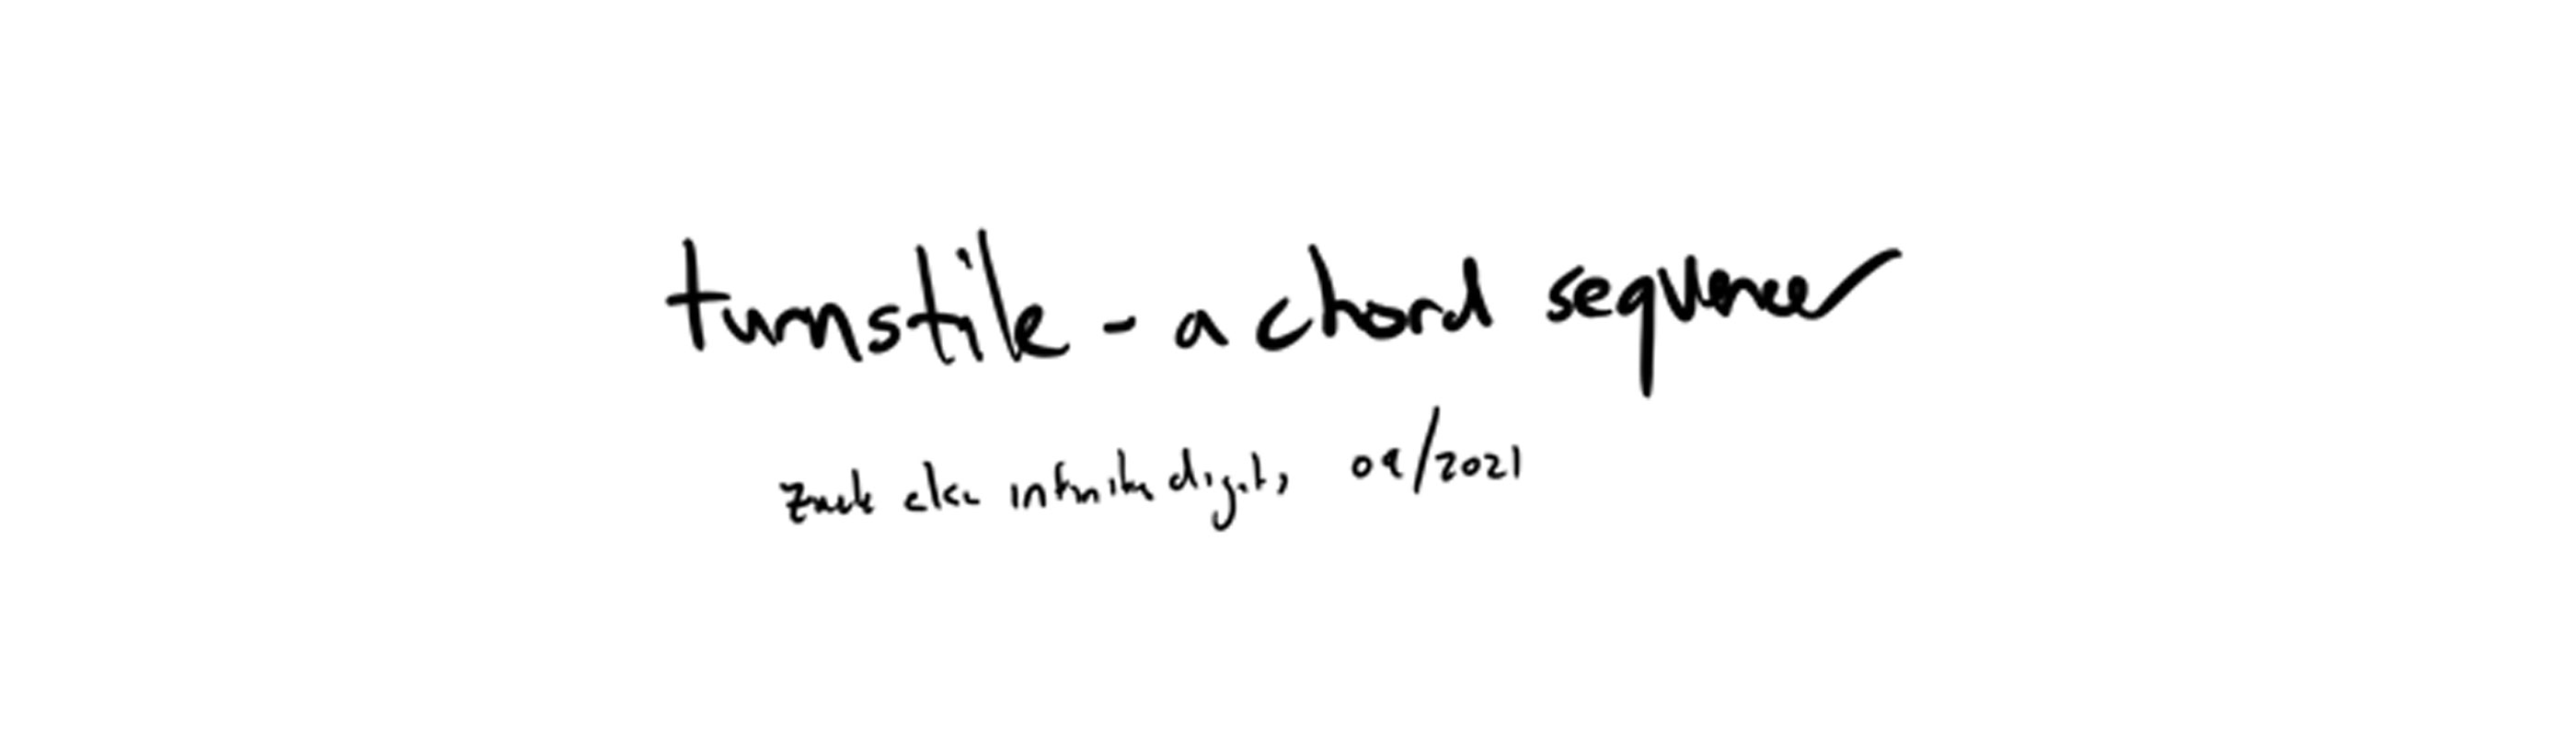 turnstile - a chord sequencer
Zack aka infinite digits, 09/2021